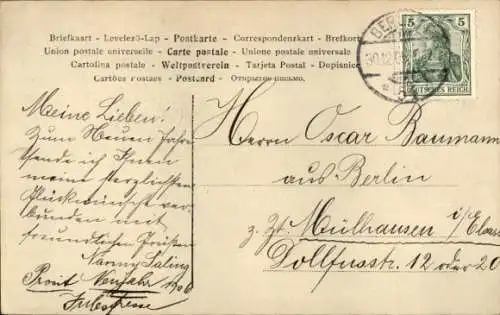 Briefkaart - Levelező-Lap - Postkarte - Correspondenzkart - Brefkort
Union postale universelle - Carte postale - Unione postale universale
Cartolina postale - Weltpostverein - Tarjeta Postal - Dopisnice
Cartões Postaes - Postcard - Открытое письмо.
5 5
DEUTSCHES REICH
BER
30.12.0
Meine Lieben!
Zum Neuen Jahre
sende ich Ihnen
meine herzlichsten
Glückwünsche ver-
bunden mit
freundlichen Grüßen
Nanny Saling
Prosit Neujahr 1906
Herrn Oscar Baumann
aus Berlin
z. Zt. Mülhausen i/Elsass
Dollfusstr. 12 oder 20